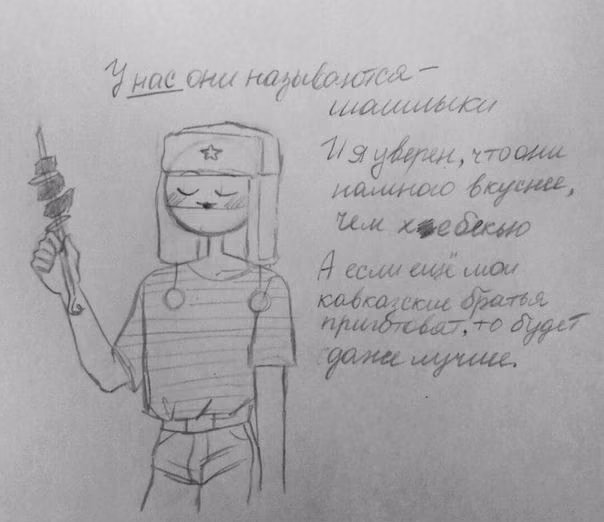 У нас они называются –
шашлыки
И я уверен, что они
намного вкуснее,
чем хебекью
А если ещё мои
кавказские братья
приготовят, то будет
даже лучше.